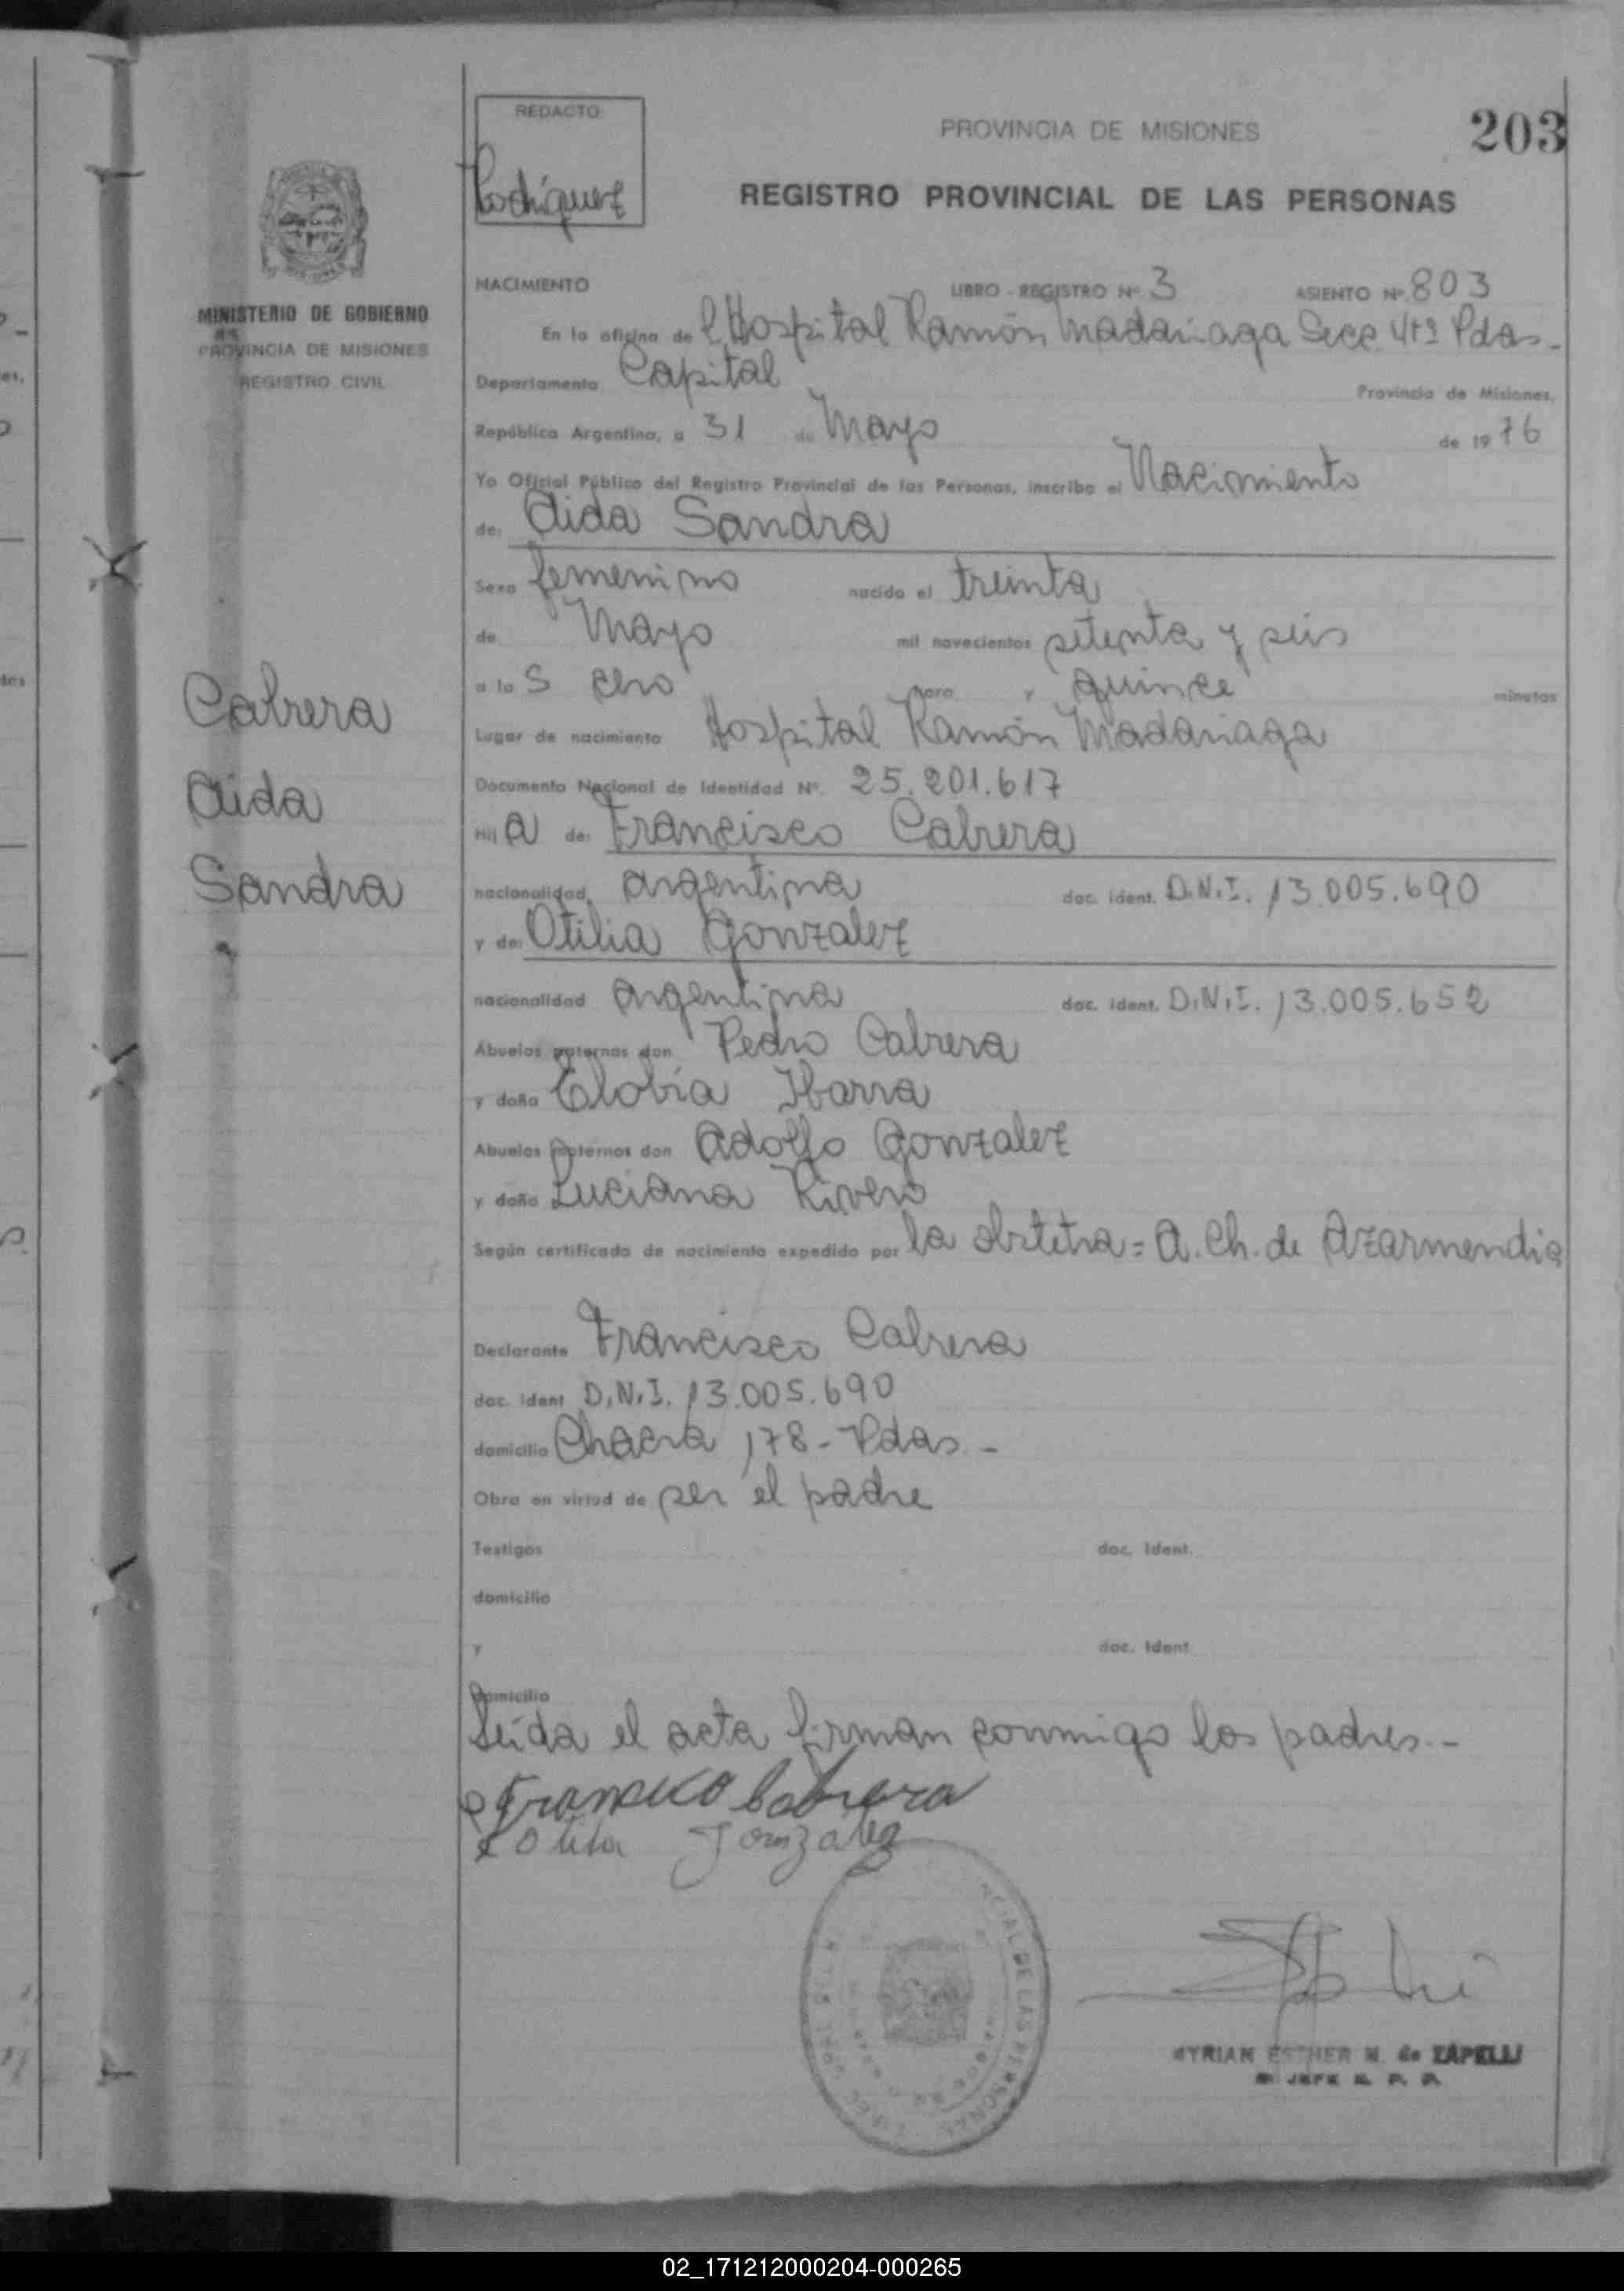 REDACTO:
Rodriguez
PROVINCIA DE MISIONES
203
REGISTRO PROVINCIAL DE LAS PERSONAS
MINISTERIO DE GOBIERNO
PROVINCIA DE MISIONES
REGISTRO CIVIL
NACIMIENTO LIBRO - REGISTRO Nº 3 ASIENTO Nº 803
En la oficina de l Hospital Ramón Madariaga Secc. 4ta Pdas.-
Departamento Capital Provincia de Misiones,
República Argentina, a 31 de Mayo de 1976
Yo Oficial Público del Registro Provincial de las Personas, inscribo el Nacimiento
de: Aida Sandra
Sexo femenino nacido el treinta
de Mayo mil novecientos setenta y seis
a las cero hora y quince minutos
Lugar de nacimiento Hospital Ramón Madariaga
Documento Nacional de Identidad Nº. 25.201.617
Hij a de: Francisco Cabrera
nacionalidad argentina doc. ident. D.N.I. 13.005.690
y de: Otilia Gonzalez
nacionalidad argentina doc. ident. D.N.I. 13.005.652
Abuelos paternos don Pedro Cabrera
y doña Clobia Ibarra
Abuelos maternos don Adolfo Gonzalez
y doña Luciana Rivero
Según certificado de nacimiento expedido por la obstetra = A. Ch. de Azarmendia
Declarante Francisco Cabrera
doc. ident D.N.I. 13.005.690
domicilio Chacra 178 - Pdas. -
Obra en virtud de ser el padre
Testigos doc. ident.
domicilio
y doc. ident
domicilio
Leída el acta firman conmigo los padres.-
Francisco Cabrera
Otilia Gonzalez
Cabrera
Aida
Sandra
MYRIAN ESTHER N. de ZAPELLI
JEFE R. P. P.
02_171212000204-000265